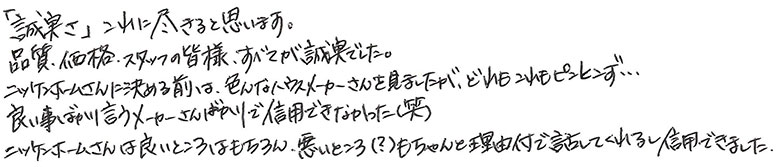 「誠実さ」これに尽きると思います。
品質、価格、スタッフの皆様、すべてが誠実でした。
ニッケンホームさんに決める前は、色んなハウスメーカーさんを見ましたが、どれもこれもピンとこず…
良い事ばかり言うメーカーさんばかりで信用できなかった(笑)
ニッケンホームさんは良いところはもちろん、悪いところ(?)もちゃんと理由付で話してくれるし信用できました。